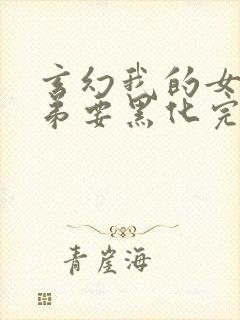 玄幻我的女
弟要黑化完
青崖海